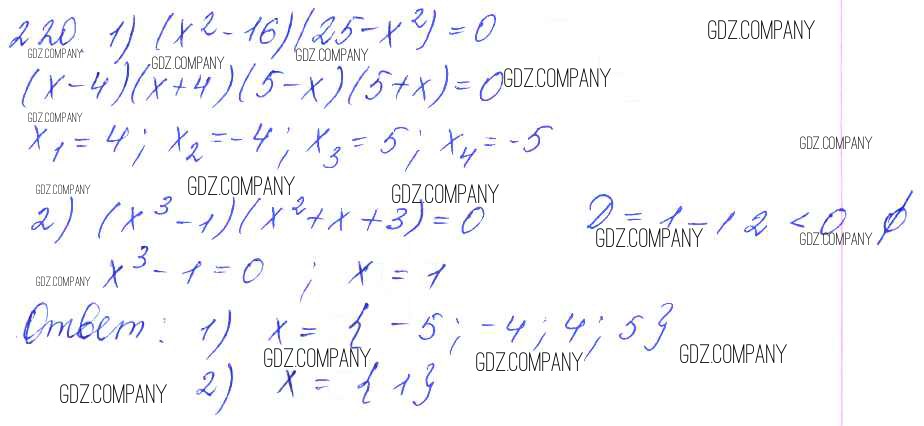 220 1) (x² - 16)(25 - x²) = 0
GDZ.COMPANY
GDZ.COMPANY GDZ.COMPANY GDZ.COMPANY
(x - 4)(x + 4)(5 - x)(5 + x) = 0
GDZ.COMPANY
GDZ.COMPANY
x₁ = 4; x₂ = -4; x₃ = 5; x₄ = -5
GDZ.COMPANY
GDZ.COMPANY GDZ.COMPANY GDZ.COMPANY
2) (x³ - 1)(x² + x + 3) = 0 D = 1 - 12 < 0 ∅
GDZ.COMPANY GDZ.COMPANY
x³ - 1 = 0 ; x = 1
GDZ.COMPANY
Ответ: 1) x = { -5; -4; 4; 5}
GDZ.COMPANY GDZ.COMPANY GDZ.COMPANY
2) x = {1}
GDZ.COMPANY